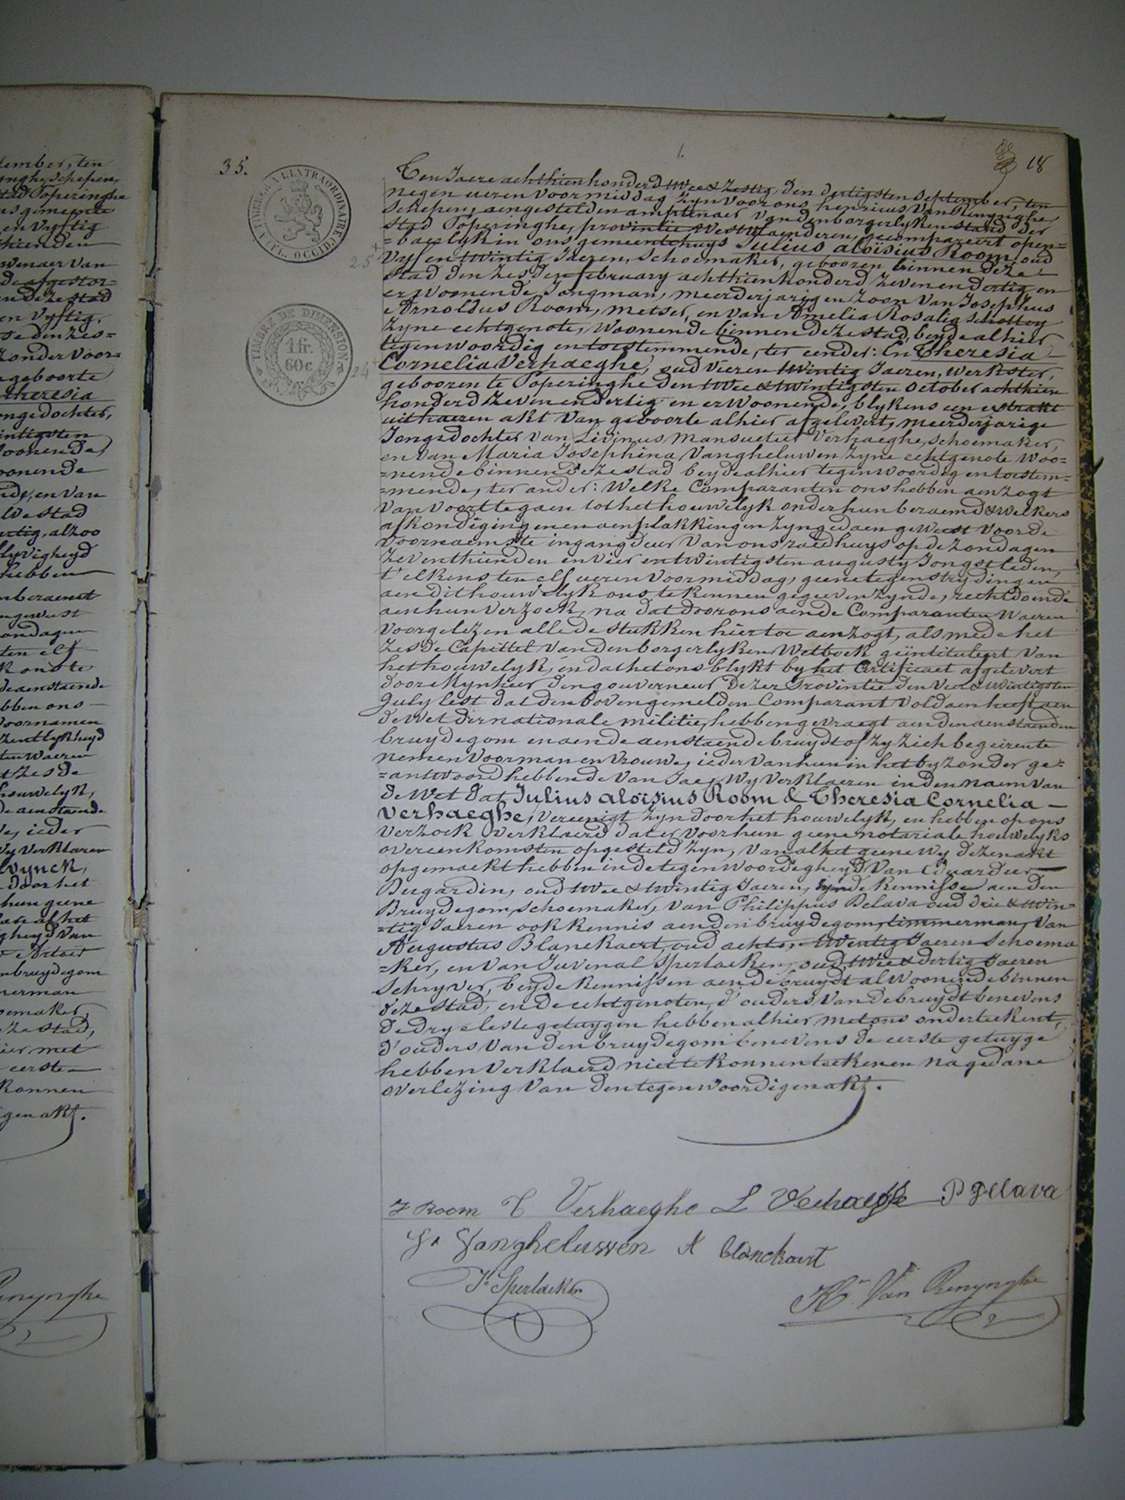 35.
18
Ten Jaere achthienhonderd twee & Zestig, den dertigsten September, ten
negen ueren voormiddag, zyn voor ons henricus Van Renynghe
Schepen, aengestelden amptenaer Van den borgerlyken stand der
Stad Poperinghe, provintie Westvlaenderen, gecompareert open=
=baerlyk in ons gemeentehuys Julius aloïsius Room, oud
vyf en twintig Jaeren, schoemaker, gebooren binnen deze
stad den zesden february achthienhonderd zeven en dertig, en
er Woonende, Jongman, meerderjarigen zoon Van Josephus
Arnoldus Room, metser, en van Amelia Rosalia Schottey
Zyne echtgenote, Woonende binnen deze stad beyde alhier
tegenwoordig en toestemmende, ter eender: En Theresia
Cornelia Verhaeghe, oud vier en twintig Jaeren, Werkster,
gebooren te Poperinghe den twee & twintigsten october achthien
honderd zeven en dertig en er Woonende, blykens een extrakt
uit haeren akt Van geboorte alhier afgelevert, meerderjarige
Jongedochter van Livinus Mansuetus Verhaeghe, schoemaker,
en Van Maria Josephina Vangheluwen zyne echtgenote Woo=
=nende binnen deze stad beyde alhier tegenwoordig en toestem=
=mende, ter ander: Welke Comparanten ons hebben aenzogt
van voort te gaen tot het houwelyk onder hun beraemd & welkers
afkondigingen en aenplakkingen zyn gedaen geweest voor de
voornaemste ingangdeur Van ons raedhuys op de zondagen
zeventhienden en vier en twintigsten augusty Jongstleden,
t'elkens ten elf ueren voormiddag, geene tegenstrydingen
aen dit houwelyk ons te kennen gegeeven zynde, rechtdoende
aen hun Verzoek, na dat door ons aen de Comparanten Waeren
voorgelezen alle de stukken hier toe aenzogt, als mede het
zesde Capittel Van den borgerlyken Wetboek geïntituleert Van
het houwelyk, en dat het ons blykt by het Certificaet afgelevert
door Mynheer den gouverneur dezer Provintie den vier & twintigsten
July lest dat den bovengemelden Comparant voldaen heeft aen
de wet der nationale militie, hebben gevraegt aen den aenstaenden
bruydegom en aen de aenstaende bruydt of zy zich begeirente
nemen voor man en vrouwe, ieder van hun in het byzonder ge=
=antwoord hebbende Van Jae, Wy verklaeren in den naem van
de Wet dat Julius aloïsius Room & Theresia Cornelia
Verhaeghe, vereenigt zyn door het houwelyk, en hebben op ons
verzoek verklaerd dat er voor hun geene notariale houwelyks
overeenkomsten opgesteld zyn, van al het geene wy dezen akt
opgemaekt hebben in de tegenwoordigheyd Van Eduardus
Dugardin, oud twee & twintig Jaeren, kennisse aen den
Bruydegom, schoemaker, van Philippus Delava oud drie & twin=
=tig Jaeren ook kennis aen den bruydegom, timmerman, Van
Augustus Blanckaert, oud acht & twintig Jaeren Schoema
=ker, en van Juvenal Sperlaeken, oud twee & dertig Jaeren
Schryver, beyde kennissen aen de bruydt al Woonende binnen
deze stad, en de echtgenoten, d'ouders van de bruydt benevens
de dry leste getuygen hebben alhier met ons onderteekent,
d'ouders Van den bruydegom benevens de eerste getuyge
hebben verklaerd niet te konnen teekenen na gedane
overlezing Van den tegenwoordigen akt.
J Room T Verhaeghe L Verhaeghe P Delava
Vangheluwen A blanckaert
Jl Sperlaeken
Hn Van Renynghe
TIMBRE A L'EXTRAORDINAIRE
OCCID.
TIMBRE DE DIMENSION
1 fr.
60 c.